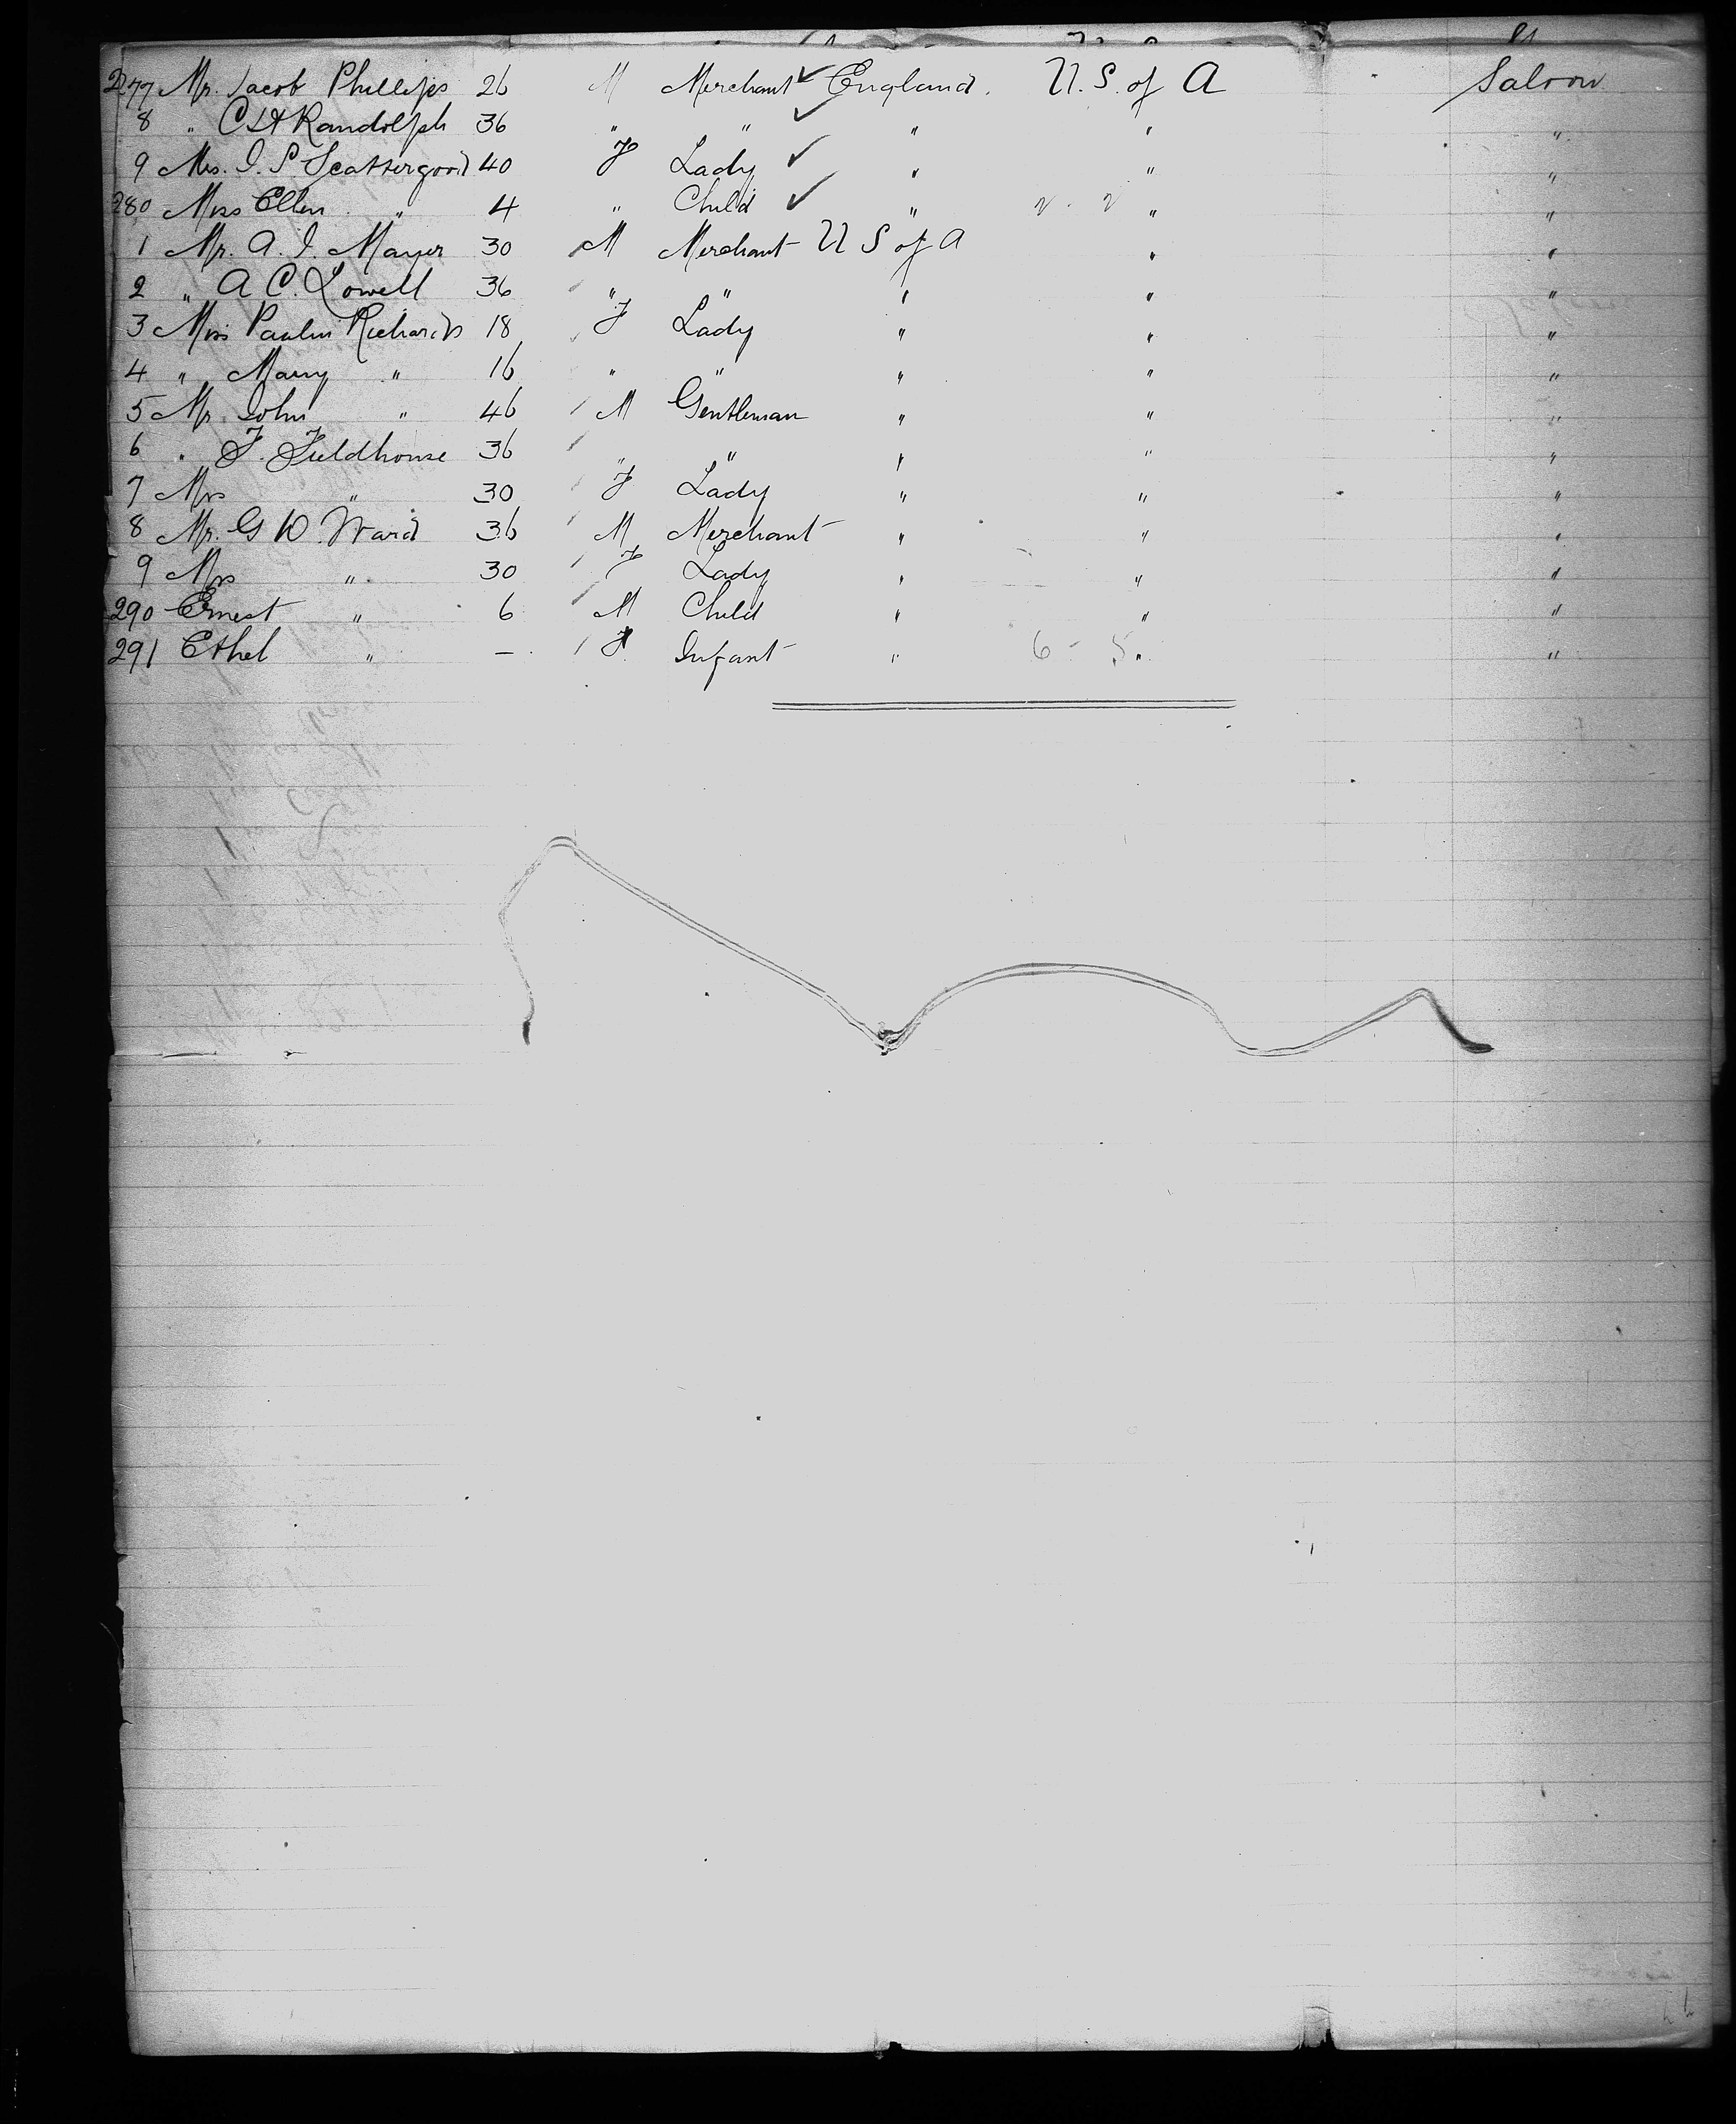 277 Mr. Jacob Phillips 26 M Merchant ✓ England. U.S. of A Saloon
8 " C Randolph 36 " " ✓ " " "
9 Mrs. I. S. Scattergood 40 F Lady ✓ " " "
280 Miss Ellen " 4 " Child ✓ " 2 - 2 " "
1 Mr. A. I. Mayer 30 M Merchant U S of A " "
2 " A C. Lowell 36 " " " " "
3 Miss Paulin Richards 18 F Lady " " "
4 " Mary " 16 " " " " "
5 Mr. John " 46 M Gentleman " " "
6 " F. Fieldhouse 36 " " " " "
7 Mrs " 30 F Lady " " "
8 Mr. G W. Ward 36 M Merchant " " "
9 Mrs " 30 F Lady " " "
290 Ernest " 6 M Child " " "
291 Ethel " — F. Infant " 6 - 5 " "